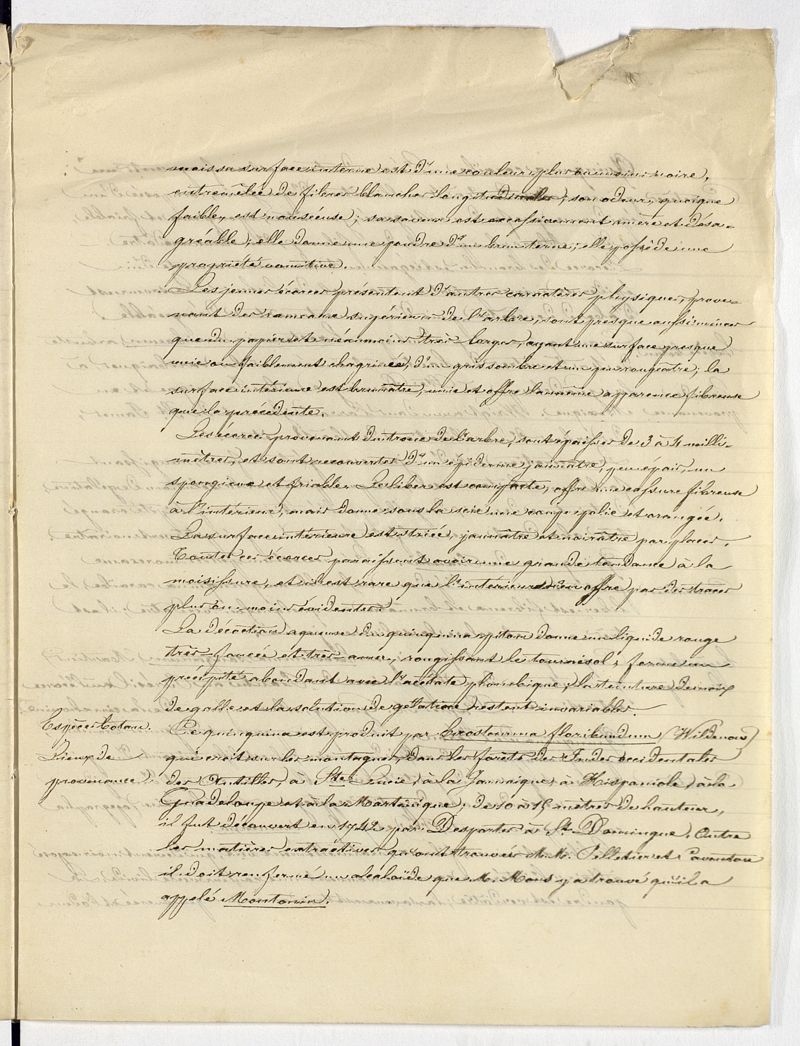 mais sa surface interne est d'une couleur plus ou moins noire,
entremêlée de fibres blanches longitudinales, son odeur, quoique
faible, est nauséeuse; sa saveur est excessivement amère et désa-
gréable, elle donne une poudre d'un brun terne; elle possède une
propriété vomitive.
Les jeunes écorces présentent d'autres caractères physiques, prove-
nant des rameaux supérieurs de l'arbre, sont presque aussi minces
que du papier et néanmoins très larges, ayant une surface presque
unie ou faiblement chagrinée, d'un gris sombre et un peu rougeâtre; la
surface intérieure est brunâtre, unie et offre la même apparence fibreuse
que la précédente.
Les écorces provenant du tronc de l'arbre, sont épaisses de 3 à 4 milli-
mètres, et sont recouvertes d'un épiderme jaunâtre, peu épais, un
spongieux et friable. Le liber est compacte, offre une cassure fibreuse
à l'intérieur, mais donne sous la scie une coupe polie et orangée.
La surface intérieure est striée, jaunâtre et noirâtre par places.
Toutes ces écorces paraissent avoir une grande tendance à la
moisissure, et il est rare que l'intérieur n'en offre pas des traces
plus ou moins évidentes.
La décoction aqueuse du quinquina pitou donne un liquide rouge
très foncé et très amer, rougissant le tournesol, forme un
précipité abondant avec l'acétate plombique, la teinture de noix
de galle et la solution de gélatine restent invariables.
Espèces botan. Ce quinquina est produit par Exostemma floribundum (Wildenow)
Lieux de qui croit sur les montagnes, dans les forêts des Indes occidentales
provenance. des Antilles, à Ste Lucie, à la Jamaïque, à Hispaniole, à la
Guadeloupe et à la Martinique, de 10 à 15 mètres de hauteur,
il fut découvert en 1742 par Desportes à St Domingue, Outre
les matières extractives qu'ont trouvées M.M. Pelletier et Caventou
il doit renfermer un alcaloïde que M. Mons y a trouvé qu'il a
appelé Montanin.